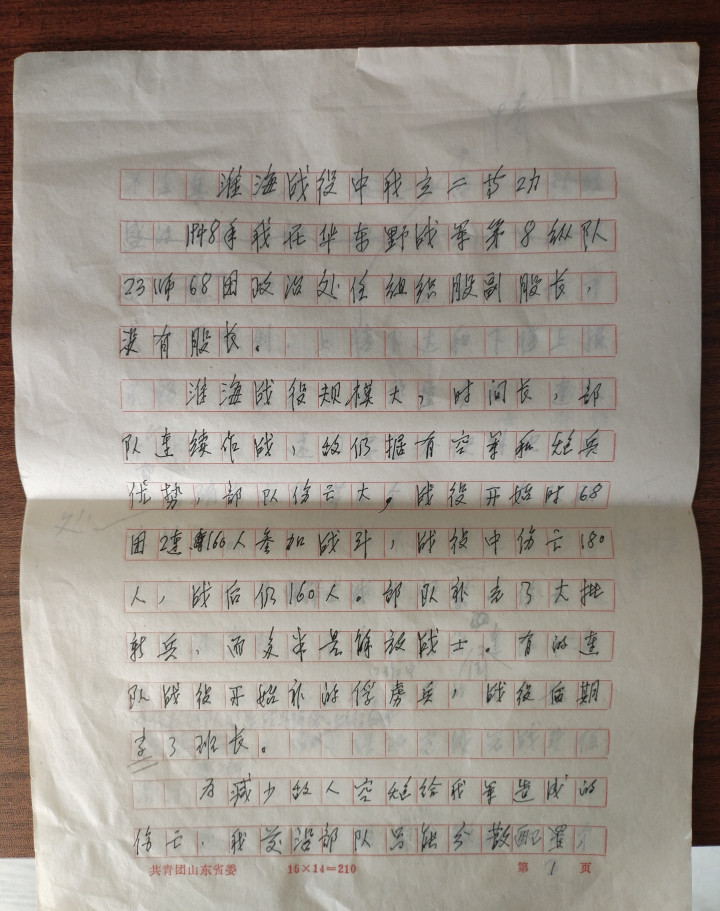 淮海战役中我立二等功
1948年我在华东野战军第8纵队
23师68团政治处任组织股副股长，
没有股长。
淮海战役规模大，时间长，部
队连续作战，敌仍握有空军和炮兵
优势，部队伤亡大。战役开始时68
团2连160人参加战斗，战役中伤亡180
人，战后仍160人。部队补充了大批
新兵，而多半是解放战士。有的连
队战役开始补的俘虏兵，战役后期
当了班长。
为减少敌人空炮给我军造成的
伤亡，我前沿部队只能分散配置
共青团山东省委 15×14=210 第 1 页